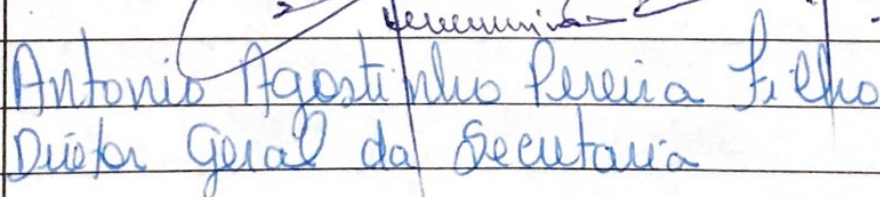 Antonio Agostinho Pereira Filho
Diretor Geral da Secretaria